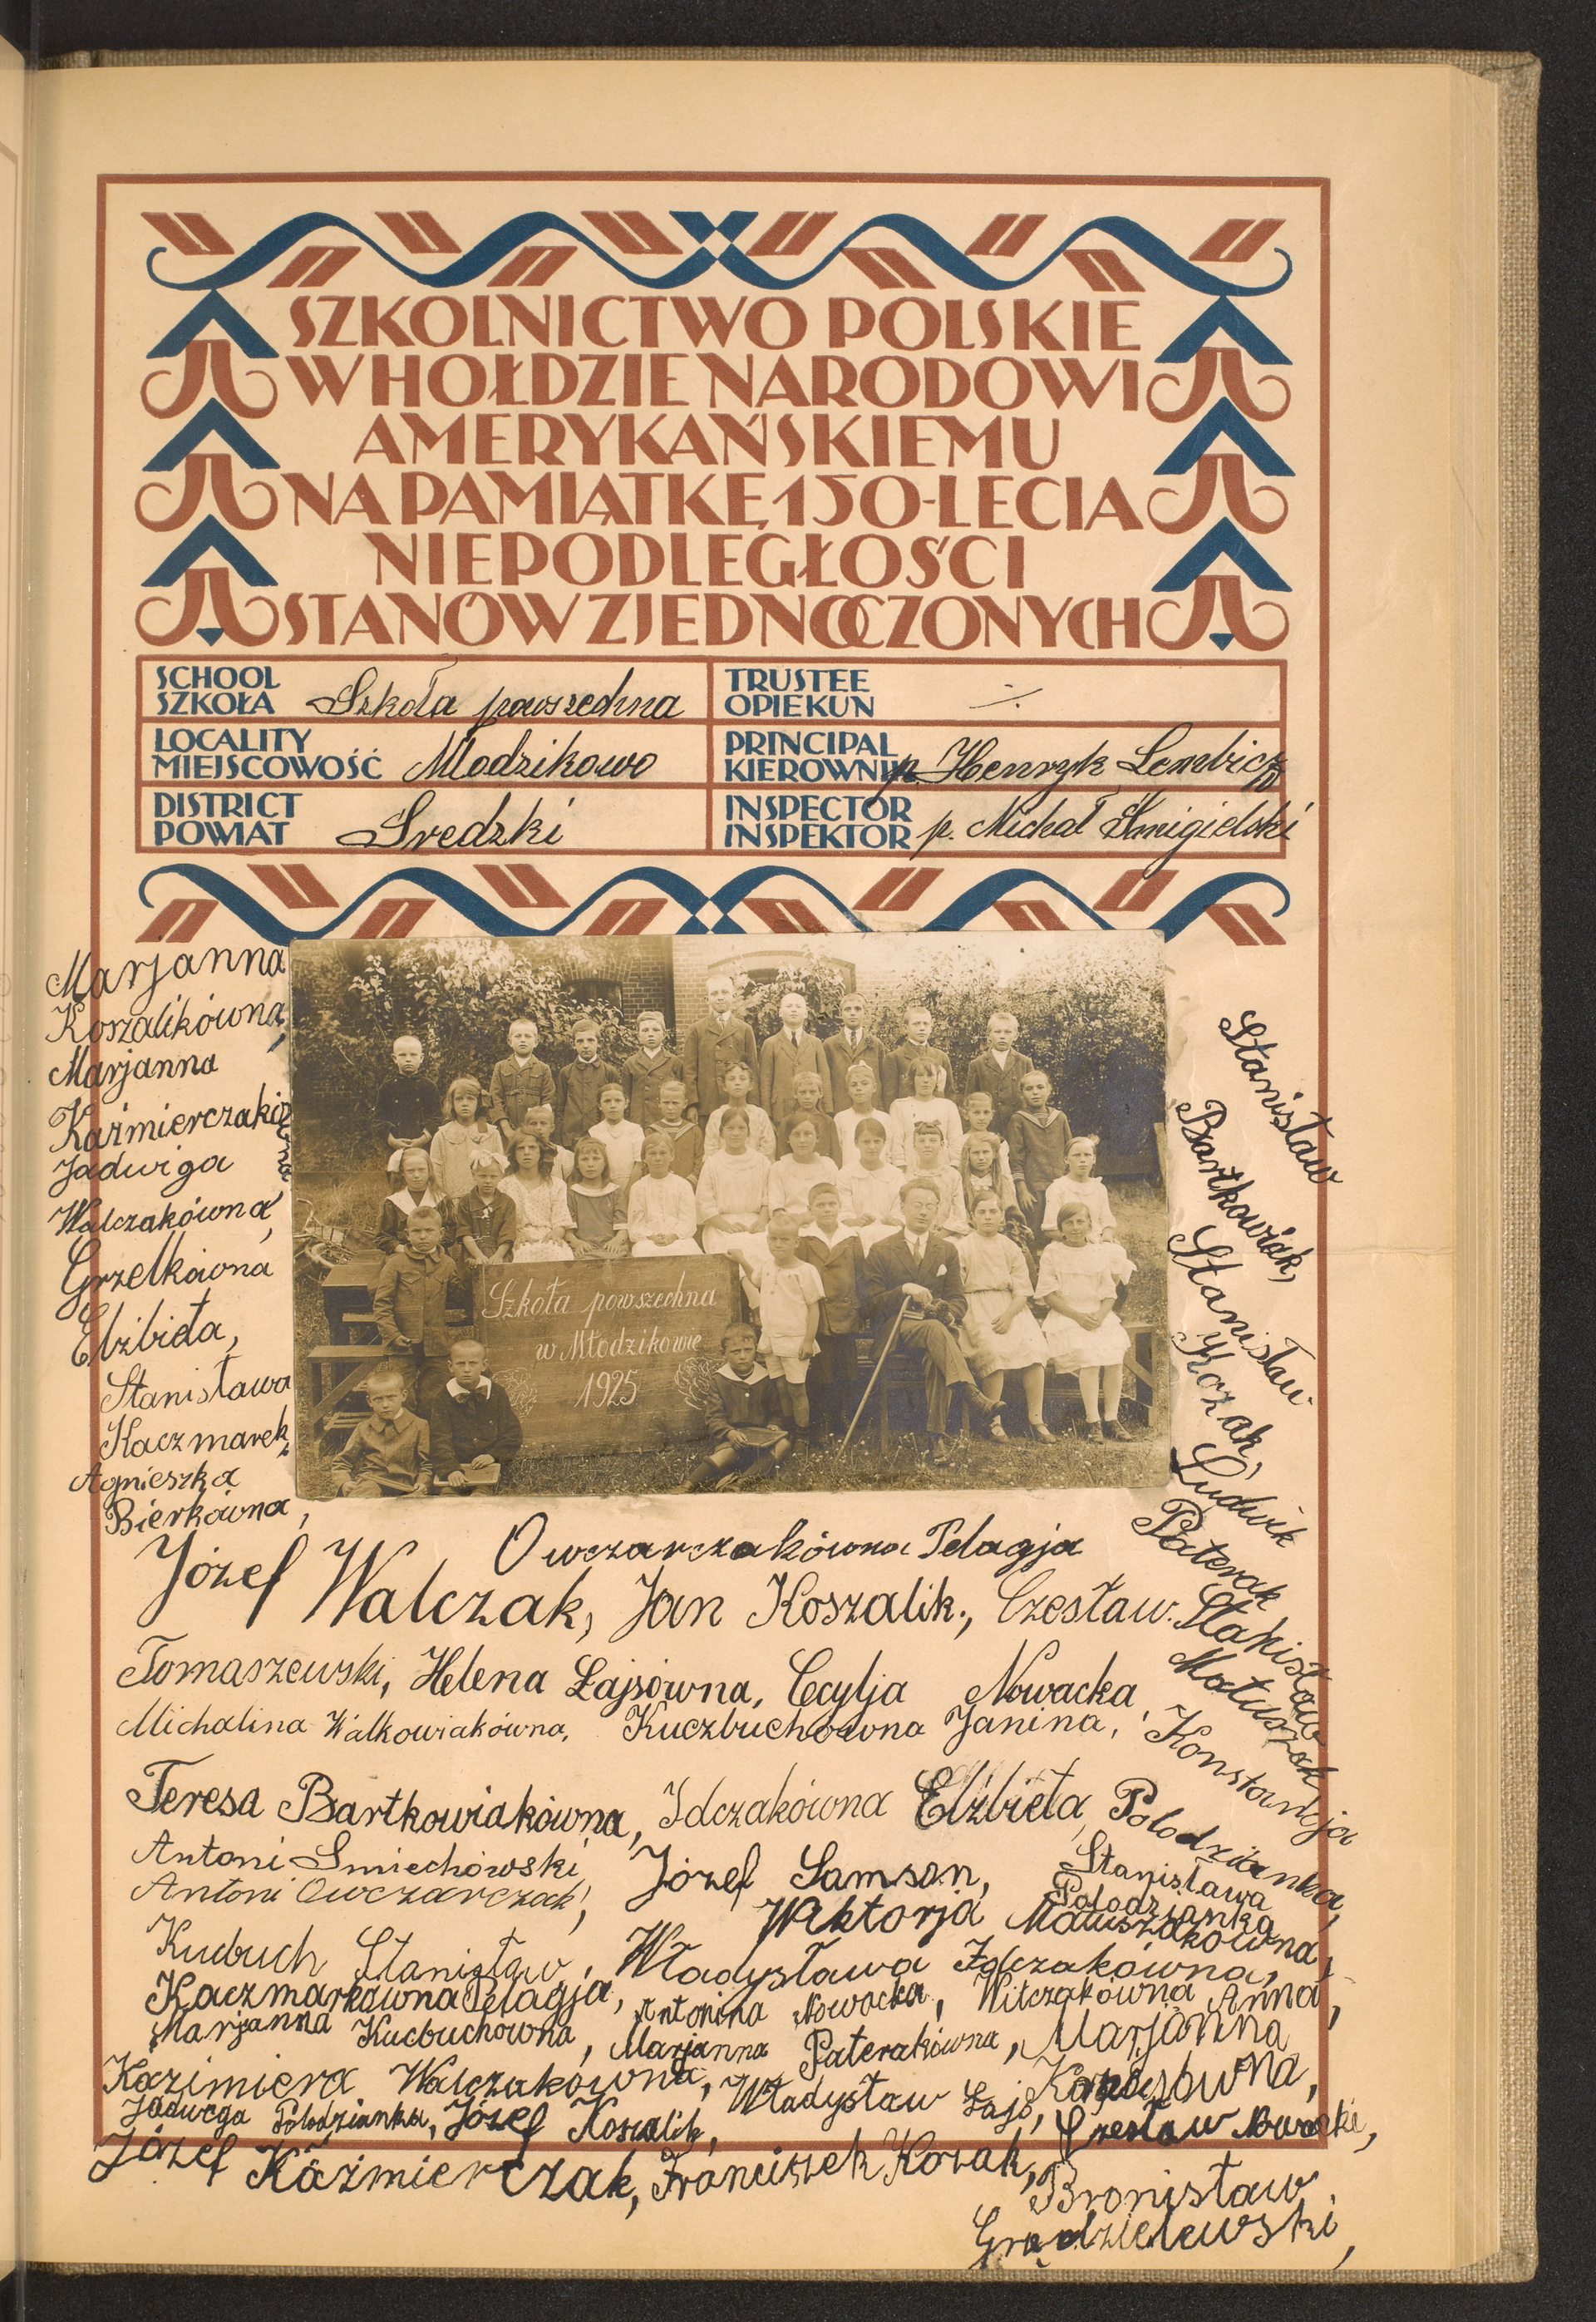 SZKOLNICTWO POLSKIE
W HOŁDZIE NARODOWI
AMERYKAŃSKIEMU
NA PAMIĄTKĘ 150-LECIA
NIEPODLEGŁOŚCI
STANÓW ZJEDNOCZONYCH
SCHOOL
SZKOŁA Szkoła powszechna
TRUSTEE
OPIEKUN ÷
LOCALITY
MIEJSCOWOŚĆ Młodzikowo
PRINCIPAL
KIEROWNIK p. Henryk Lembicz
DISTRICT
POWIAT Sredzki
INSPECTOR
INSPEKTOR p. Michał Śmigielski
Marjanna
Koszalikówna,
Marjanna
Kaźmierczakówna
Jadwiga
Walczakówna,
Grzelkówna
Elżbieta,
Stanisława
Kaczmarek,
Agnieszka
Bierkówna,
Szkoła powszechna
w Młodzikowie
1925
Stanisław
Bartkowiak,
Stanisław
Kozak,
Ludwik
Paterak,
Stanisław
Matuszak
Konstancja
Polodzianka,
Owczarczakówna Pelagja
Józef Walczak, Jan Koszalik., Czesław.
Tomaszewski, Helena Łajsówna, Cecylja Nowacka,
Michalina Walkowiakówna, Kuczbuchówna Janina,
Teresa Bartkowiakówna, Idczakówna Elżbieta,
Antoni Smiechowski, Józef Samson, Stanisława
Polodzianka
Antoni Owczarczak, Wiktorja Matuszakówna,
Kucbuch Stanisław, Władysława Idczakówna,
Kaczmarkówna Pelagja, Antonina Nowacka, Witczakówna Anna,
Marjanna Kucbuchówna, Marjanna Paterakówna, Marjanna
Kazimiera Walczakówna, Władysław Łajs,
Jadwiga Polodzianka, Józef Koszalik, Czesław Nowacki,
Józef Kaźmierczak, Franciszek Kozak,
Bronisław
Grądzielewski,